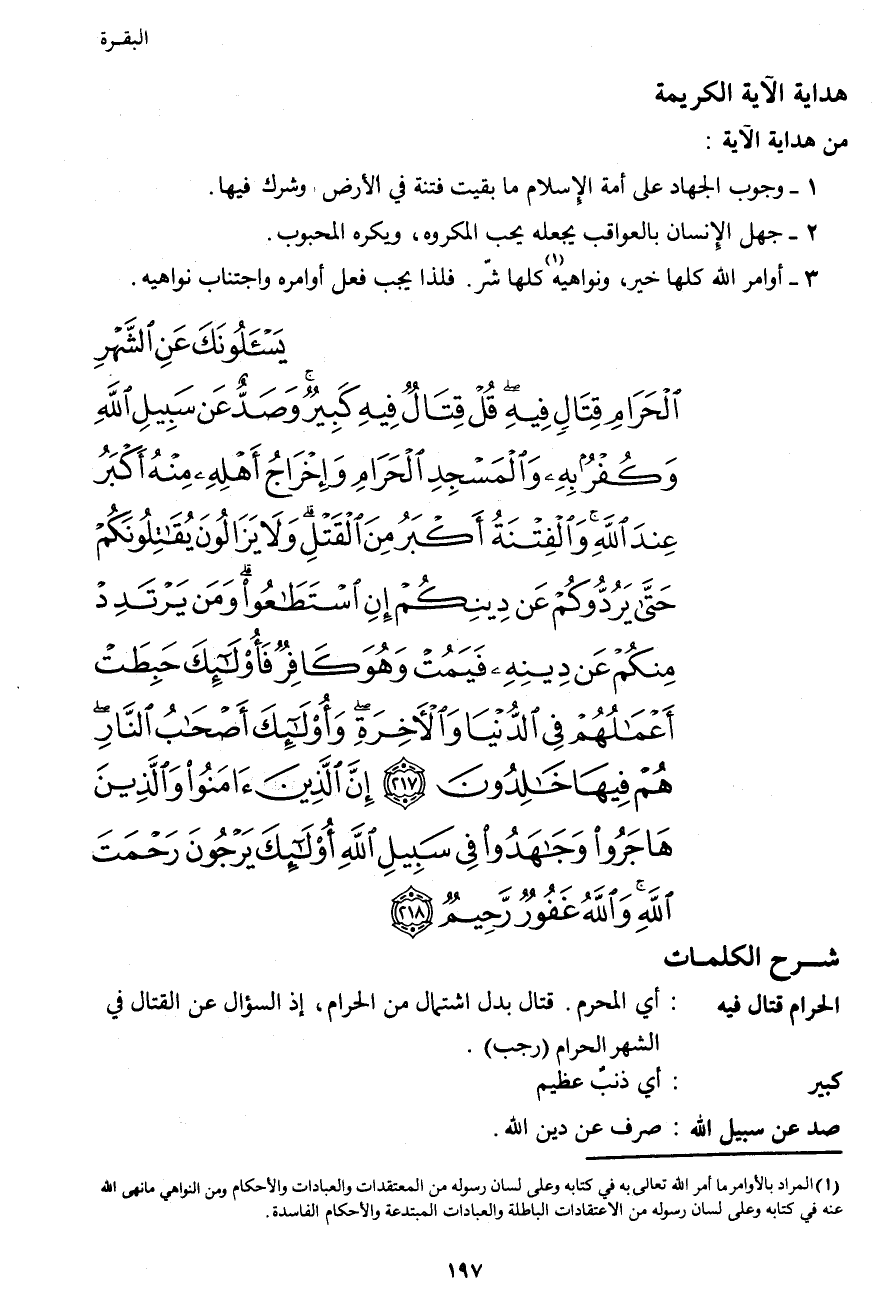 البقـرة
هداية الآية الكريمة
من هداية الآية :
١ - وجوب الجهاد على أمة الإسلام ما بقيت فتنة في الأرض وشرك فيها.
٢ - جهل الإنسان بالعواقب يجعله يحب المكروه، ويكره المحبوب.
٣ - أوامر الله كلها خير، ونواهيه(١) كلها شرّ. فلذا يجب فعل أوامره واجتناب نواهيه.
يَسْـَٔلُونَكَ عَنِ ٱلشَّهْرِ
ٱلْحَرَامِ قِتَالٍ فِيهِۖ قُلْ قِتَالٌ فِيهِ كَبِيرٌۚ وَصَدٌّ عَن سَبِيلِ ٱللَّهِ
وَكُفْرٌۢ بِهِۦ وَٱلْمَسْجِدِ ٱلْحَرَامِ وَإِخْرَاجُ أَهْلِهِۦ مِنْهُ أَكْبَرُ
عِندَ ٱللَّهِۚ وَٱلْفِتْنَةُ أَكْبَرُ مِنَ ٱلْقَتْلِۗ وَلَا يَزَالُونَ يُقَٰتِلُونَكُمْ
حَتَّىٰ يَرُدُّوكُمْ عَن دِينِكُمْ إِنِ ٱسْتَطَٰعُوا۟ۚ وَمَن يَرْتَدِدْ
مِنكُمْ عَن دِينِهِۦ فَيَمُتْ وَهُوَ كَافِرٌ فَأُو۟لَٰٓئِكَ حَبِطَتْ
أَعْمَٰلُهُمْ فِى ٱلدُّنْيَا وَٱلْأَخِرَةِۖ وَأُو۟لَٰٓئِكَ أَصْحَٰبُ ٱلنَّارِۖ
هُمْ فِيهَا خَٰلِدُونَ ﴿٢١٧﴾ إِنَّ ٱلَّذِينَ ءَامَنُوا۟ وَٱلَّذِينَ
هَاجَرُوا۟ وَجَٰهَدُوا۟ فِى سَبِيلِ ٱللَّهِ أُو۟لَٰٓئِكَ يَرْجُونَ رَحْمَتَ
ٱللَّهِۚ وَٱللَّهُ غَفُورٌ رَّحِيمٌ ﴿٢١٨﴾
شـرح الكلمـات
الحرام قتال فيه : أي المحرم. قتال بدل اشتمال من الحرام، إذ السؤال عن القتال في
الشهر الحرام (رجب) .
كبير : أي ذنبٌ عظيم
صد عن سبيل الله : صرف عن دين الله.
(١) المراد بالأوامر ما أمر الله تعالى به في كتابه وعلى لسان رسوله من المعتقدات والعبادات والأحكام ومن النواهي مانهى الله
عنه في كتابه وعلى لسان رسوله من الاعتقادات الباطلة والعبادات المبتدعة والأحكام الفاسدة.
١٩٧